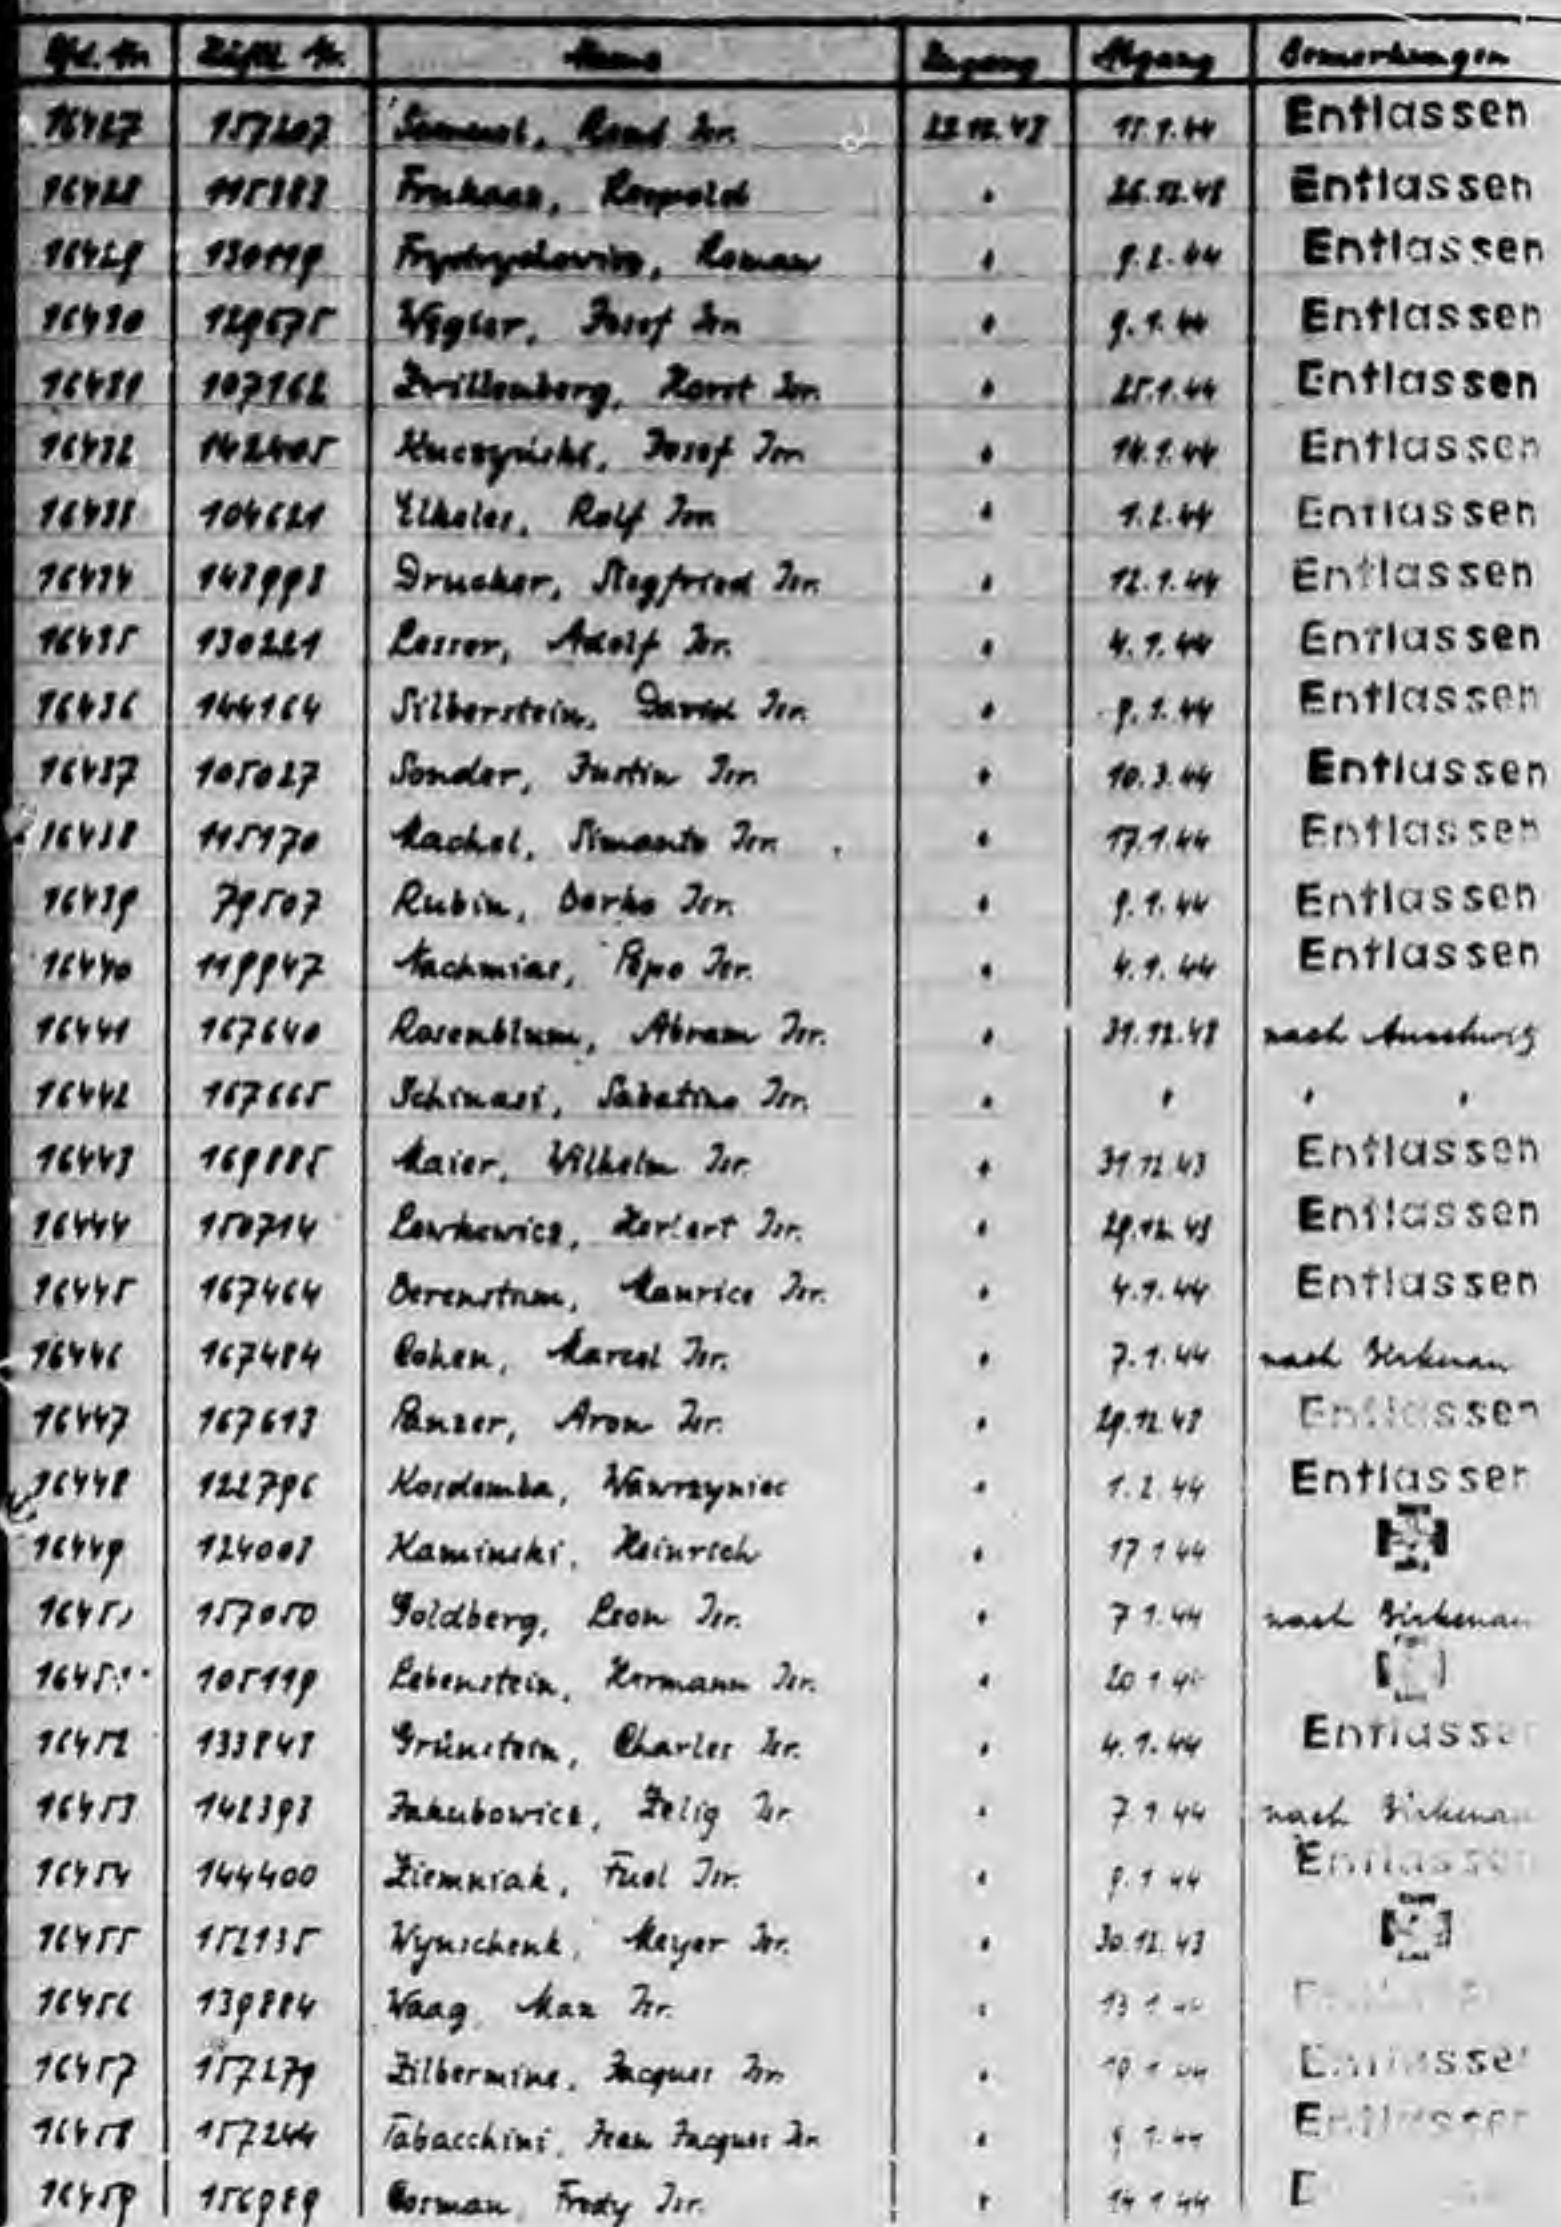 Lfd. Nr. Häftl. Nr. Name Zugang Abgang Bemerkungen
16427 157207 Isr. 22.12.43 15.1.44 Entlassen
16428 115383 Leopold " 26.12.43 Entlassen
16429 130119 Frydrychowicz, Roman " 9.2.44 Entlassen
16430 129675 Węglar, Josef Isr. " 9.1.44 Entlassen
16431 107162 Zwillenberg, Horst Isr. " 25.1.44 Entlassen
16432 142405 Kuczyński, Josef Isr. " 14.1.44 Entlassen
16433 104621 Elkeles, Rolf Isr. " 1.2.44 Entlassen
16434 143993 Drucker, Siegfried Isr. " 12.1.44 Entlassen
16435 130221 Lesser, Adolf Isr. " 4.1.44 Entlassen
16436 144164 Silberstein, David Isr. " 9.1.44 Entlassen
16437 105027 Sonder, Justin Isr. " 10.3.44 Entlassen
16438 115170 Machel, Simanto Isr. " 17.1.44 Entlassen
16439 79507 Rubin, Berko Isr. " 9.1.44 Entlassen
16440 119947 Nachmias, Pepo Isr. " 4.1.44 Entlassen
16441 167640 Rosenblum, Abram Isr. " 31.12.43 nach Auschwitz
16442 167665 Schinasi, Sabatino Isr. " " " "
16443 169885 Maier, Wilhelm Isr. " 31.12.43 Entlassen
16444 150714 Lewkowicz, Herbert Isr. " 29.12.43 Entlassen
16445 167464 Berenstam, Maurice Isr. " 4.1.44 Entlassen
16446 167484 Cohen, Marcel Isr. " 7.1.44 nach Birkenau
16447 167613 Panzer, Aron Isr. " 29.12.43 Entlassen
16448 122796 Kosdemba, Wawrzyniec " 1.2.44 Entlassen
16449 124003 Kaminski, Heinrich " 17.1.44
16450 157050 Goldberg, Leon Isr. " 7.1.44 nach Birkenau
16451 105119 Lebenstein, Hermann Isr. " 20.1.44
16452 133843 Grünstein, Charles Isr. " 4.1.44 Entlassen
16453 142393 Jakubowicz, Zelig Isr. " 7.1.44 nach Birkenau
16454 144400 Ziemniak, Fuel Isr. " 9.1.44 Entlassen
16455 152135 Wynschenk, Meyer Isr. " 30.12.43
16456 139884 Waag, Max Isr. " 13.1.44
16457 157279 Zilbermine, Jacques Isr. " 10.1.44 Entlassen
16458 157244 Tabacchini, Jean Jacques Isr. " 9.1.44 Entlassen
16459 156989 Corman, Fredy Isr. " 14.1.44 E